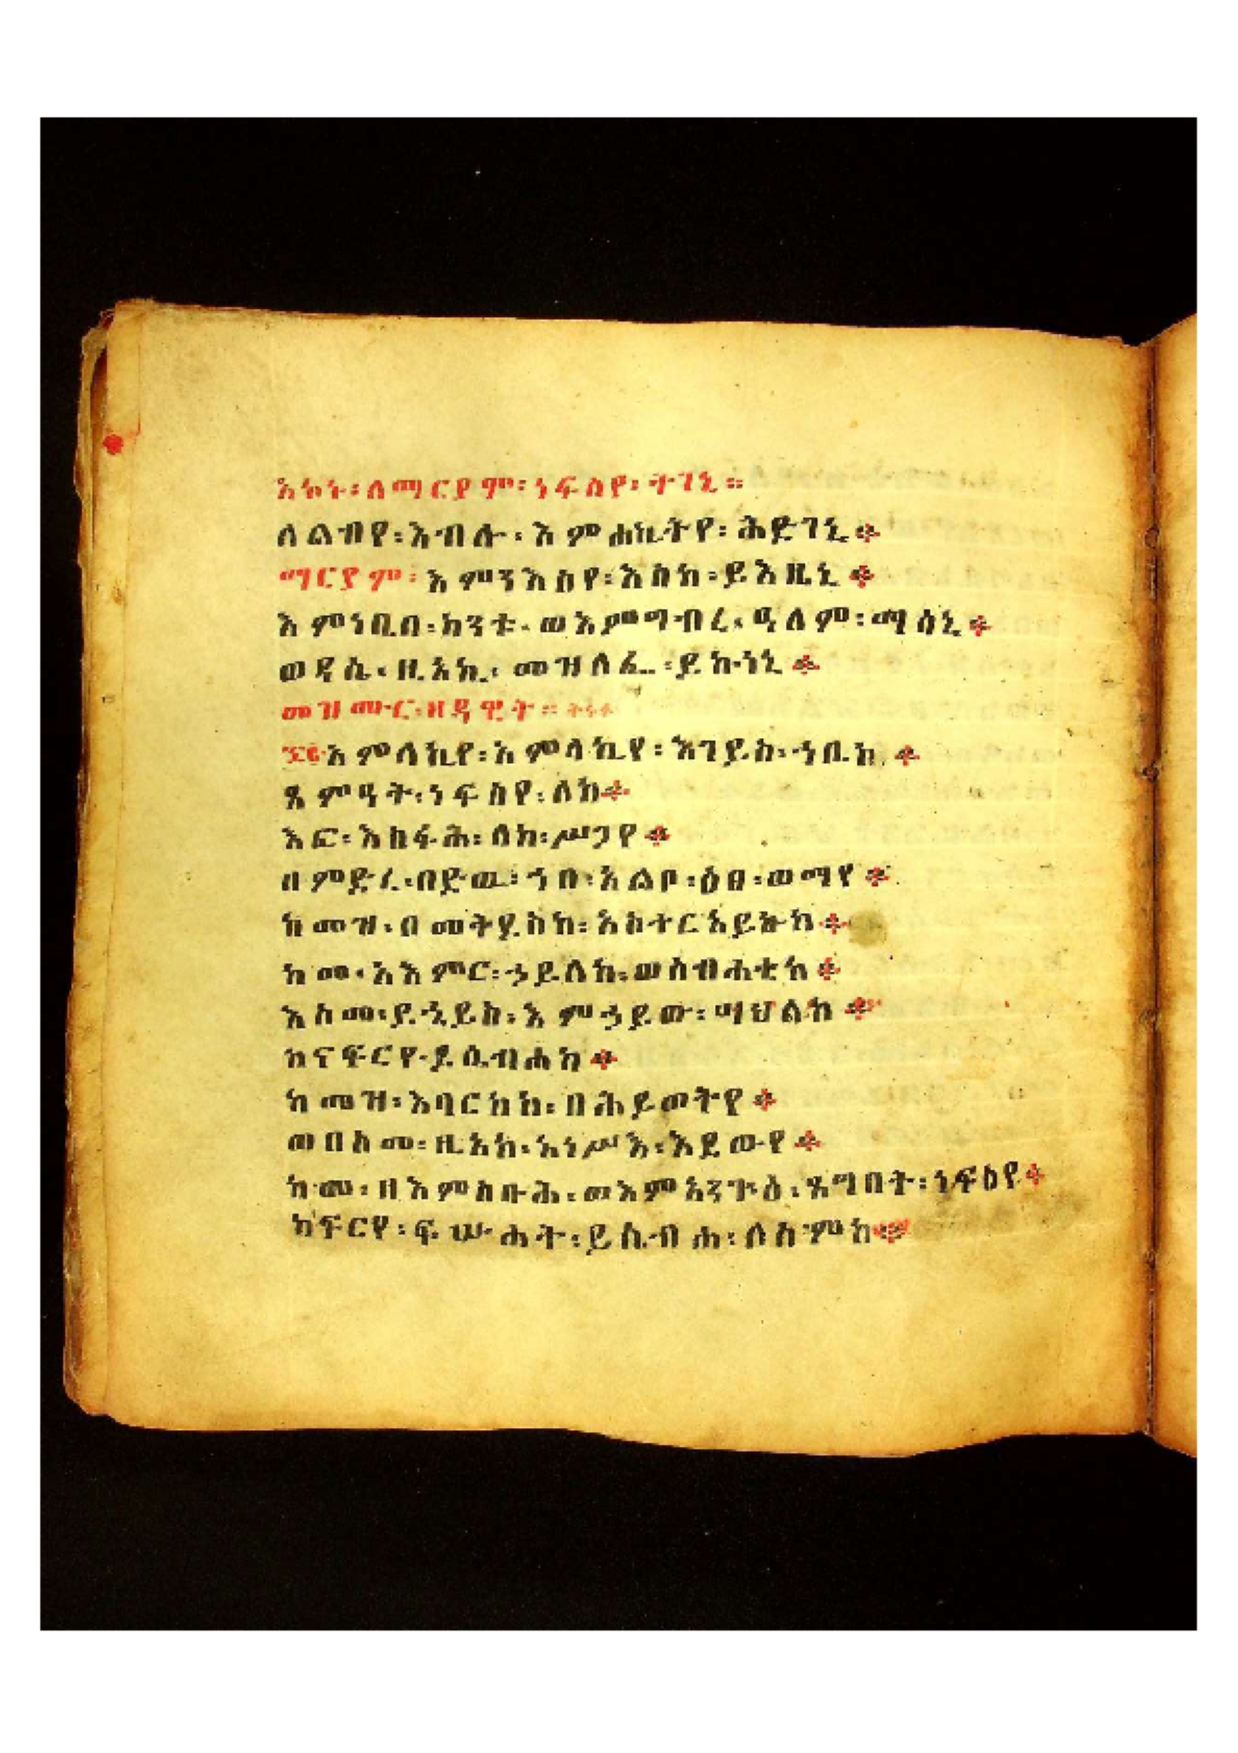 አኮኑ፡ለማርያም፡ነፍስየ፡ትገኒ።
ለልብየ፡እብሉ፡እምሐኪትየ፡ሕድገኒ፨
ማርያም፡እምኃእስየ፡እስከ፡ይእዜኒ፨
እምነቢበ፡ከንቱ፡ወእምግብረ፡ዓለም፡ማሰኒ፨
ወዳሴ፡ዚአኪ፡መዝለፈ፡ይኩነኒ፨
መዝሙር፡ዘዳዊት።
፷፪አምላኪየ፡አምላኪየ፡እገይስ፡ኀቤከ፨
ጸምዓት፡ነፍስየ፡ለከ፨
እፎ፡እከፋሕ፡ለከ፡ሥጋየ፨
በምድረ፡በድው፡ኀበ፡አልቦ፡ዕፀ፡ወማየ፨
ከመዝ፡በመትሂስከ፡አስተርአይኩከ፨
ከመ፡አእምር፡ኃይለከ፡ወስብሐቲከ፨
እስመ፡ይኄይስ፡እምኃይው፡ሣህልከ፨
ከናፍርየ፡ይሴብሐከ፨
ከመዝ፡እባርከከ፡በሕይወትየ፨
ወበስመ፡ዚአከ፡አነሥእ፡እደውየ፨
ከመ፡ዘእምስቡሕ፡ወእምአንጕዕ፡ጸግበት፡ነፍስየ፨
ከፍርየ፡ፍሡሐት፡ይሴብሐ፡ለስምከ፨